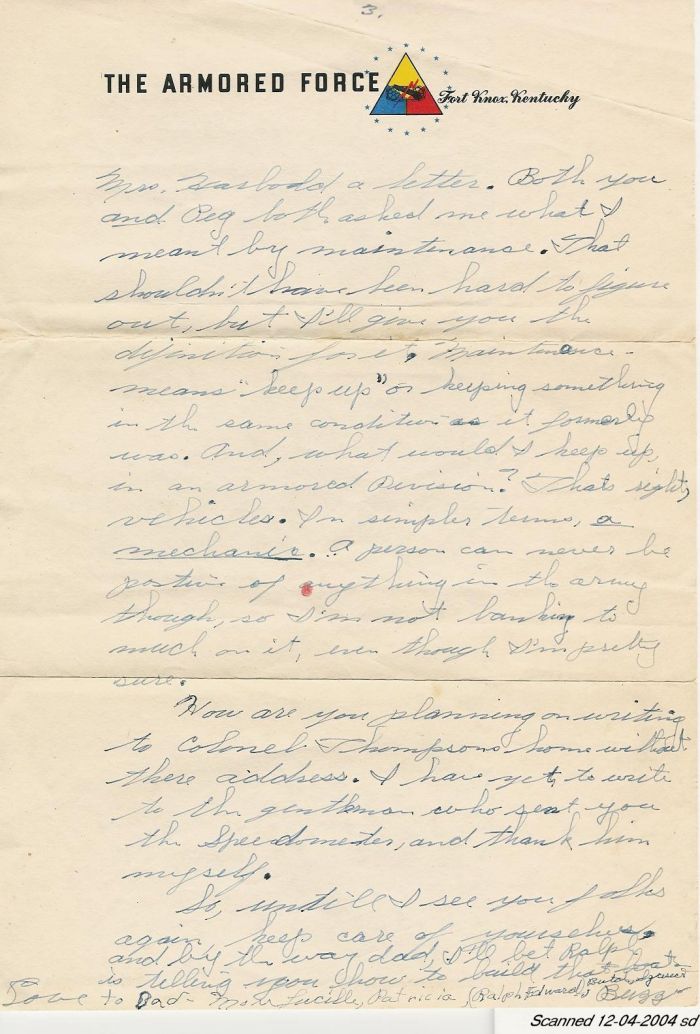 3.
THE ARMORED FORCE
Fort Knox, Kentucky
Mrs. a letter. Both you
and Peg both asked me what I
meant by maintenance. That
shouldn't have been hard to figure
out, but I'll give you the
definition for it, "Maintenance -
means "keep up" or keeping something
in the same condition as it formerly
was. And, what would I keep up,
in an armored Division? Thats right,
vehicles. In simpler terms, a
mechanic. A person can never be
positive of anything in the army
though, so I'm not banking to
much on it, even though I'm pretty
sure.
How are you planning on writing
to Colonel Thompsons home without
there address. I have yet to write
to the gentleman who sent you
the Speedometer, and thank him
myself.
So, untill I see you folks
again, keep care of yourselves,
and by the way dad, I'll bet Ralph
is telling you how to build that boat
Love to Dad - Mom Lucille, Patricia & Ralph Edward,
Scanned 12-04-2004 sd